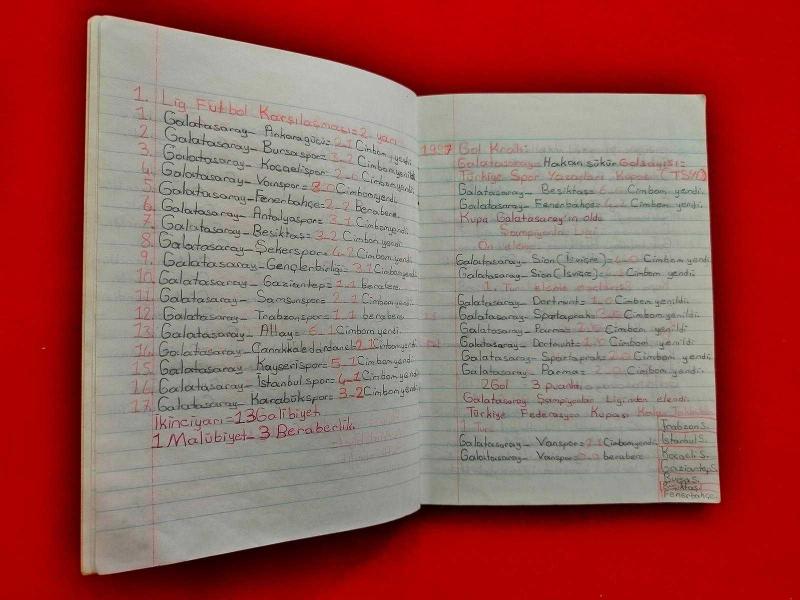 1. Lig Fütbol Karşılaşması=2. yarı
1. Galatasaray- Ankaragücü= 2-1 Cimbom yendi
2. Galatasaray- Bursaspor= 3-2 Cimbom yenildi
3. Galatasaray- Kocaelispor= 2-0 Cimbomyendi
4. Galatasaray- Vanspor= 8-0 Cimbomyendi
5. Galatasaray-Fenerbahçe= 2-2 Berabere
6. Galatasaray- Antalyaspor= 3-1 Cimbomyendi
7. Galatasaray- Beşiktaş= 3-2 Cimbom yendi
8. Galatasaray- Şekerspor= 4-2 Cimbom yendi
9. Galatasaray- Gençlerbirliği= 3-1 Cimbomyendi
10. Galatasaray- Gaziantep= 1-1 berabere
11. Galatasaray- Samsunspor= 2-1 Cimbomyendi
12. Galatasaray- Trabzonspor= 1-1 berabere
13. Galatasaray- Altay= 6-1 Cimbom yendi
14. Galatasaray- Canakkaledardanel=2-1 Cimbomyendi
15. Galatasaray- Kayserispor= 5-1 Cimbomyendi
16. Galatasaray- İstanbulspor= 4-1 Cimbomyendi
17. Galatasaray- Karabükspor= 3-2 Cimbom yendi
İkinciyarı=13Galibiyet
1 Malübiyet- 3 Beraberlik
1997 Gol Kralı:
Galatasaray- Hakan Şükür Golsayısı=
Türkiye Spor Yazarları Kupası (TSYD)
Galatasaray- Beşiktaş= Cimbom yendi.
Galatasaray- Fenerbahçe= 4-2 Cimbom yendi.
Kupa Galatasaray'ın oldu
Şampiyonlar Ligi
Ön eleme
Galatasaray- Sion (İsviçre)= Cimbom yendi
Galatasaray- Sion (İsviçre)= Cimbom yendi
1. Tur eleme
Galatasaray- Dortmunt= 1-0 Cimbom yenildi.
Galatasaray- Spartapırak= Cimbom yenildi.
Galatasaray- Parma= 2-0 Cimbom yenildi
Galatasaray- Dortmunt= 1-0 Cimbom yenildi.
Galatasaray- Spartaprak= 2-0 Cimbom yendi.
Galatasaray- Parma= 2-0 Cimbom yenildi.
2Gol 3 puanla
Galatasaray Şampiyonlar Liginden elendi.
Türkiye Federasyon Kupası
1 Tur=
Trabzon S.
Galatasaray- Vanspor= 2-1 Cimbomyendi
İstanbul S.
Galatasaray- Vanspor=0-0 berabere
Kocaeli S.
Gaziantep S.
Bursa S.
Beşiktaş
Fenerbahçe